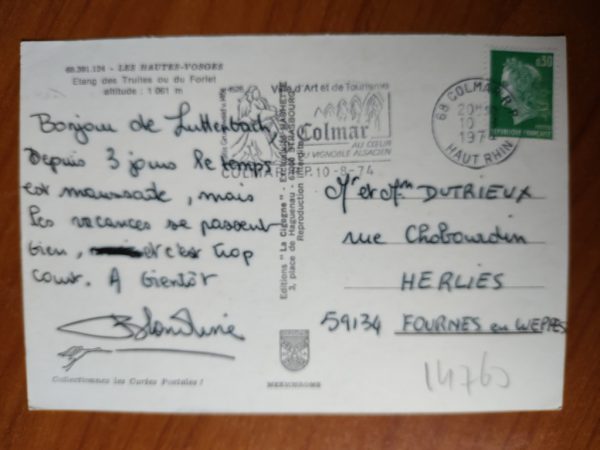 68.391.124 - LES HAUTES-VOSGES
Etang des Truites ou du Forlet
altitude : 1 061 m
Bonjour de Lutterbach,
Depuis 3 jours le temps
est maussade, mais
les vacances se passent
bien, et c'est trop
court. A bientôt
Blandine
Collectionnez les Cartes Postales !
Ville d'Art et de Tourisme
Colmar
AU CŒUR
DU VIGNOBLE ALSACIEN
COLMAR R.P. 10-8-74
Editions " La Cigogne "
3, place de Haguenau - 67000 STRASBOURG
Reproduction interdite
MEXICHROME
68 COLMAR R.P.
10
1974
HAUT RHIN
0,30
REPUBLIQUE FRANÇAISE
Mr et Mme DUTRIEUX
rue Chobourdin
HERLIES
59134 FOURNES en WEPPES
14760